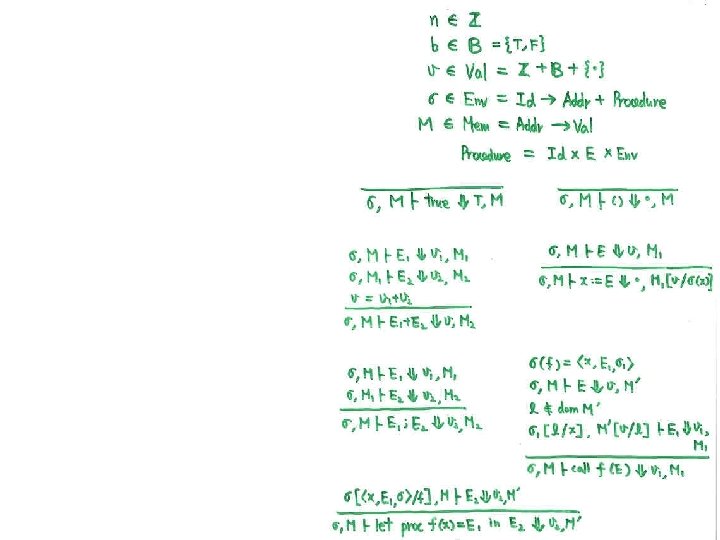 n ∈ Z
b ∈ B = {T,F}
v ∈ Val = Z + B + {·}
σ ∈ Env = Id → Addr + Procedure
M ∈ Mem = Addr → Val
Procedure = Id × E × Env
σ, M ⊢ true ⇓ T, M
σ, M ⊢ () ⇓ ·, M
σ, M ⊢ E₁ ⇓ v₁, M₁
σ, M₁ ⊢ E₂ ⇓ v₂, M₂
v = v₁+v₂
σ, M ⊢ E₁+E₂ ⇓ v, M₂
σ, M ⊢ E ⇓ v, M₁
σ, M ⊢ x := E ⇓ ·, M₁[v/σ(x)]
σ, M ⊢ E₁ ⇓ v₁, M₁
σ, M₁ ⊢ E₂ ⇓ v₂, M₂
σ, M ⊢ E₁; E₂ ⇓ v₂, M₂
σ(f) = ⟨x, E₁, σ₁⟩
σ, M ⊢ E ⇓ v, M′
ℓ ∉ dom M′
σ₁[ℓ/x], M′[v/ℓ] ⊢ E₁ ⇓ v₁,
M₁
σ, M ⊢ call f(E) ⇓ v₁, M₁
σ[⟨x, E₁, σ⟩/f], M ⊢ E₂ ⇓ v₂, M′
σ, M ⊢ let proc f(x)=E₁ in E₂ ⇓ v₂, M′